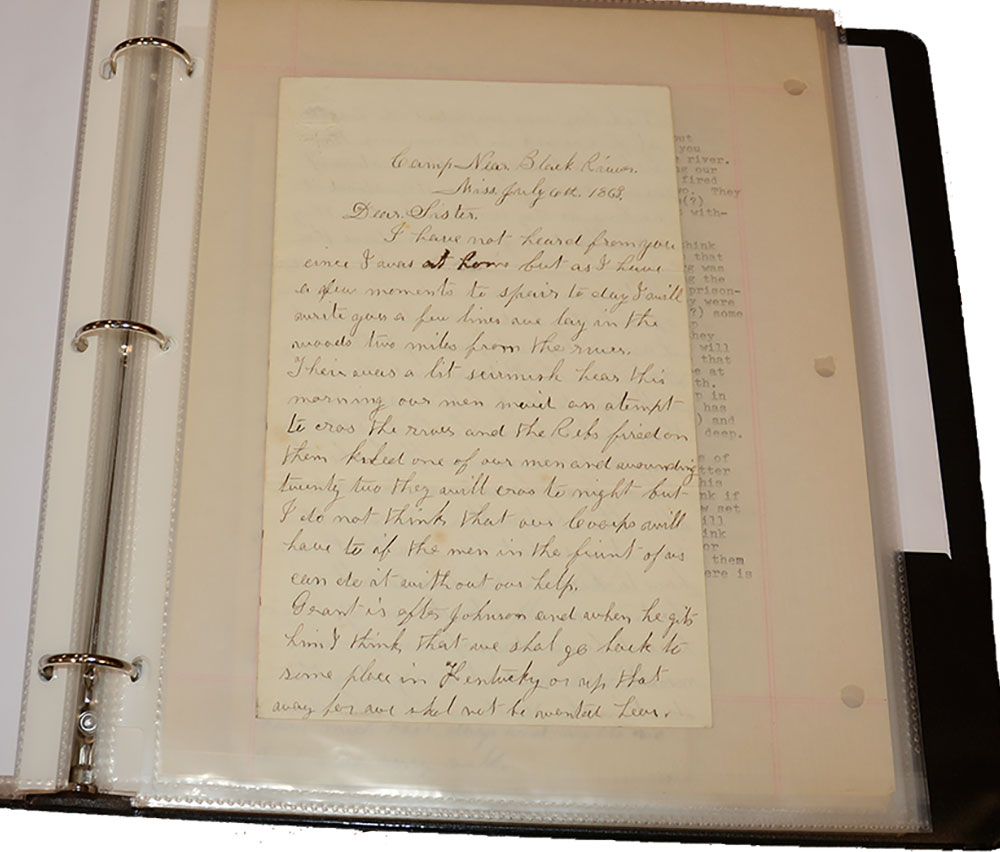 Camp Near Black River.
Miss July 6th. 1863.
Dear Sister.
I have not heard from you
since I was at home but as I have
a few moments to spair to day I will
write you a few lines we lay in the
woods two miles from the river.
Their was a lit scirmish hear this
morning our men maid an atempt
to cros the river and the Rebs fired on
them killed one of our men and wounding
twenty two they will cros to night but
I do not think that our Coorps will
have to if the men in the frunt of us
can do it without our help.
Grant is after Johnson and when he gits
him I think that we shal go back to
some place in Kentucky or up that
away for we shal not be wanted hear.
out
you
river.
our
fired
They
(?)
with-
think
that
was
the
prison-
were
(?) some
they
will
that
at
in
has
) and
deep.
of
this
if
set
or
them
ere is